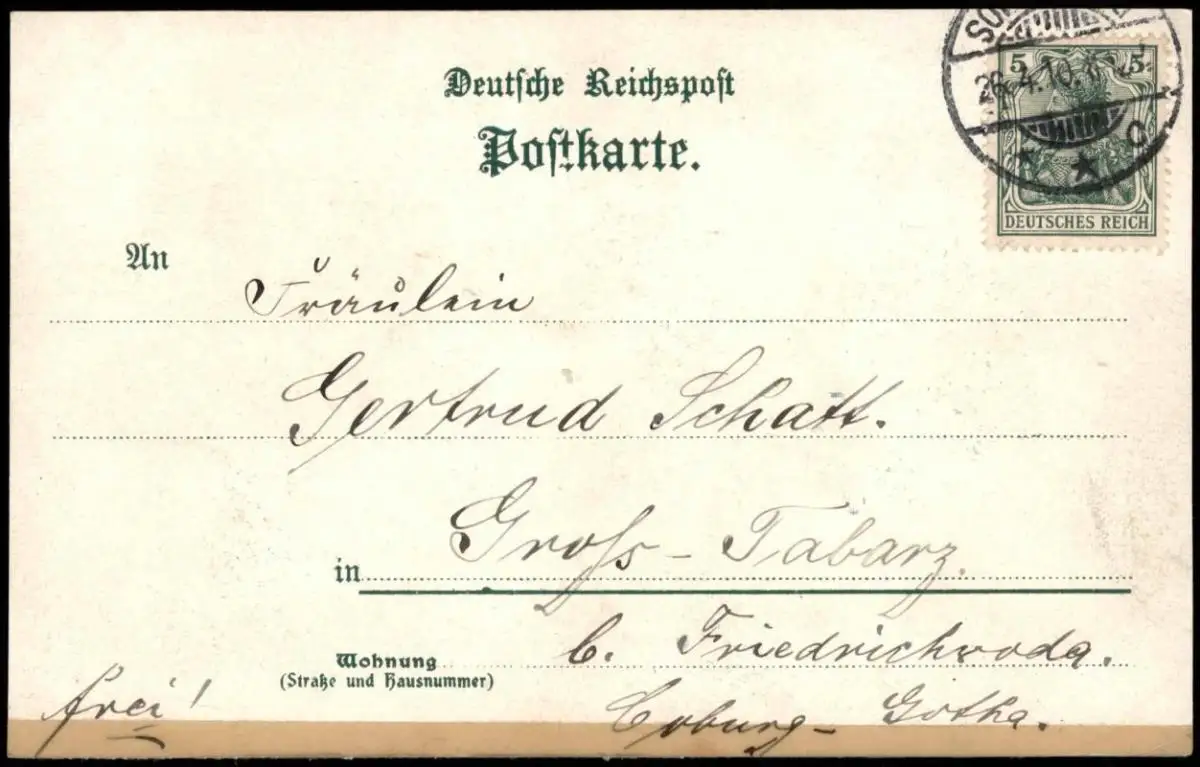 Deutsche Reichspost
Postkarte.
26.4.10.
5 5
DEUTSCHES REICH
An Fräulein
Gertrud Schatt.
in Gross-Tabarz.
Wohnung b. Friedrichroda.
(Straße und Hausnummer)
frei! Coburg-Gotha.